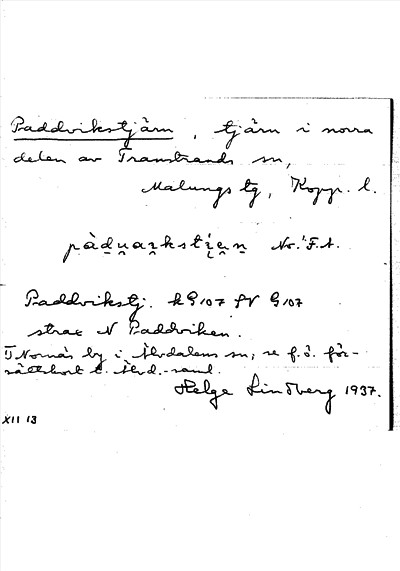 Paddvikstjärn, tjärn i norra
delen av Transtrands sn,
Malungs tg, Kopp. l.
No. F.A.
Paddvikstj. kG107 fV G107
strax N Paddviken.
i Älvdalens sn, se f.ö. för-
sättskort t. Älvd.-saml.
Helge Lindberg 1937.
XII 13